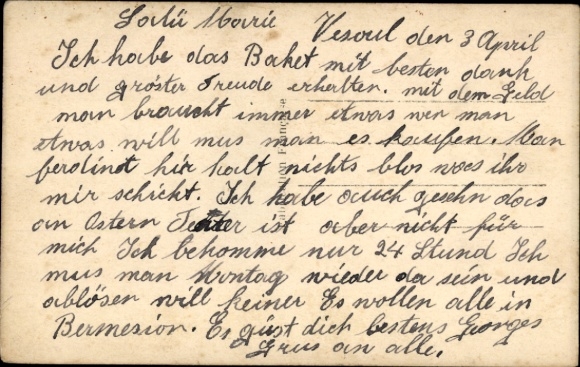 Salü Marie Vesoul den 3 April
Ich habe das Baket mit besten dank
und gröster Freude erhalten. mit dem Geld
man braucht immer etwas wen man
etwas will mus man es kaufen. Man
ferdint hir halt nichts blos was ihr
mir schickt. Ich habe auch gesehn das
an Ostern ist aber nicht für
mich Ich bekomme nur 24 Stund Ich
mus man Montag wieder da sein und
ablösen will keiner Es wollen alle in
Bermesion. Es güst dich bestens Georges
Grus an alle.